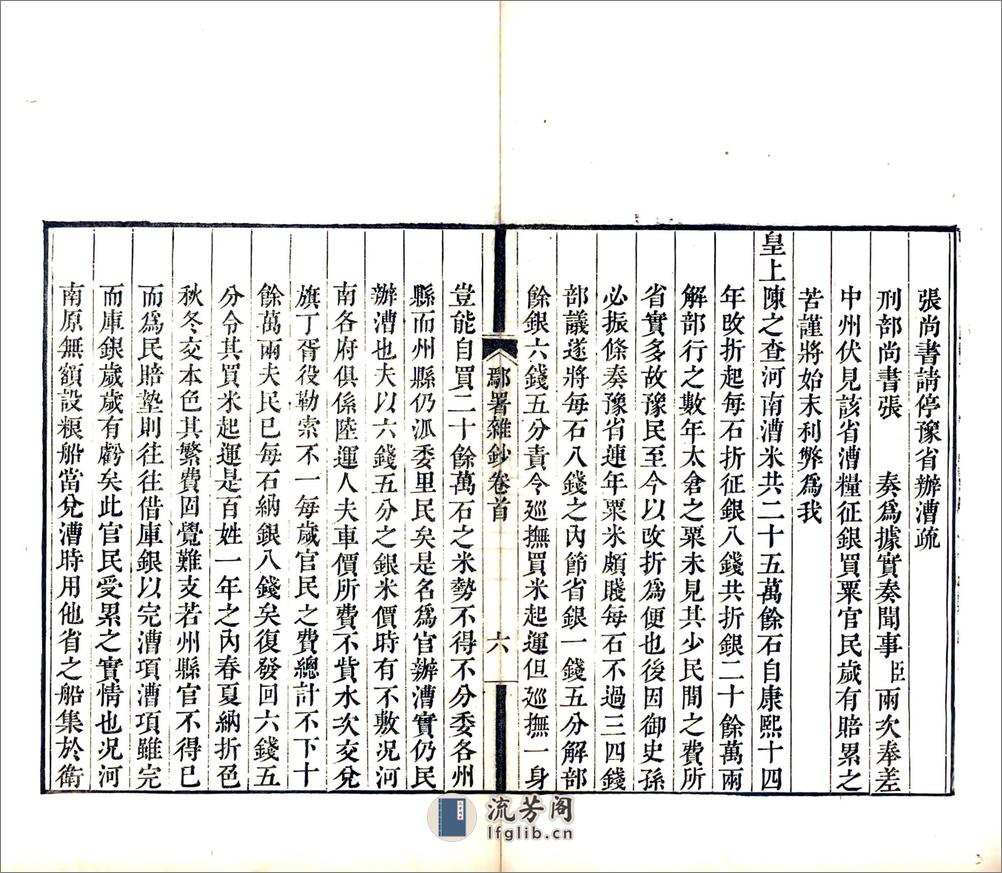 張尚書請停豫省辦漕疏
刑部尚書張　奏爲據實奏聞事臣兩次奉差
中州伏見該省漕糧征銀買粟官民歲有賠累之
苦謹將始末利弊爲我
皇上陳之查河南漕米共二十五萬餘石自康熙十四
年改折起每石折征銀八錢共折銀二十餘萬兩
解部行之數年太倉之粟未見其少民間之費所
省實多故豫民至今以改折爲便也後因御史孫
必振條奏豫省連年粟米頗賤每石不過三四錢
部議遂將每石八錢之內節省銀一錢五分解部
餘銀六錢五分責令廵撫買米起運但廵撫一身
鄢署雜鈔卷首
六
豈能自買二十餘萬石之米勢不得不分委各州
縣而州縣仍派委里民矣是名爲官辦漕實仍民
辦漕也夫以六錢五分之銀米價時有不敷况河
南各府俱係陸運人夫車價所費不貲水次交兌
旗丁胥役勒索不一每歲官民之費總計不下十
餘萬兩夫民已每石納銀八錢矣復發回六錢五
分令其買米起運是百姓一年之內春夏納折色
秋冬交本色其繁費固覺難支若州縣官不得已
而爲民賠墊則往往借庫銀以完漕項漕項雖完
而庫銀歲歲有虧矣此官民受累之實情也况河
南原無額設粮船當兌漕時用他省之船集於衛
流芳阁
lfglib.cn